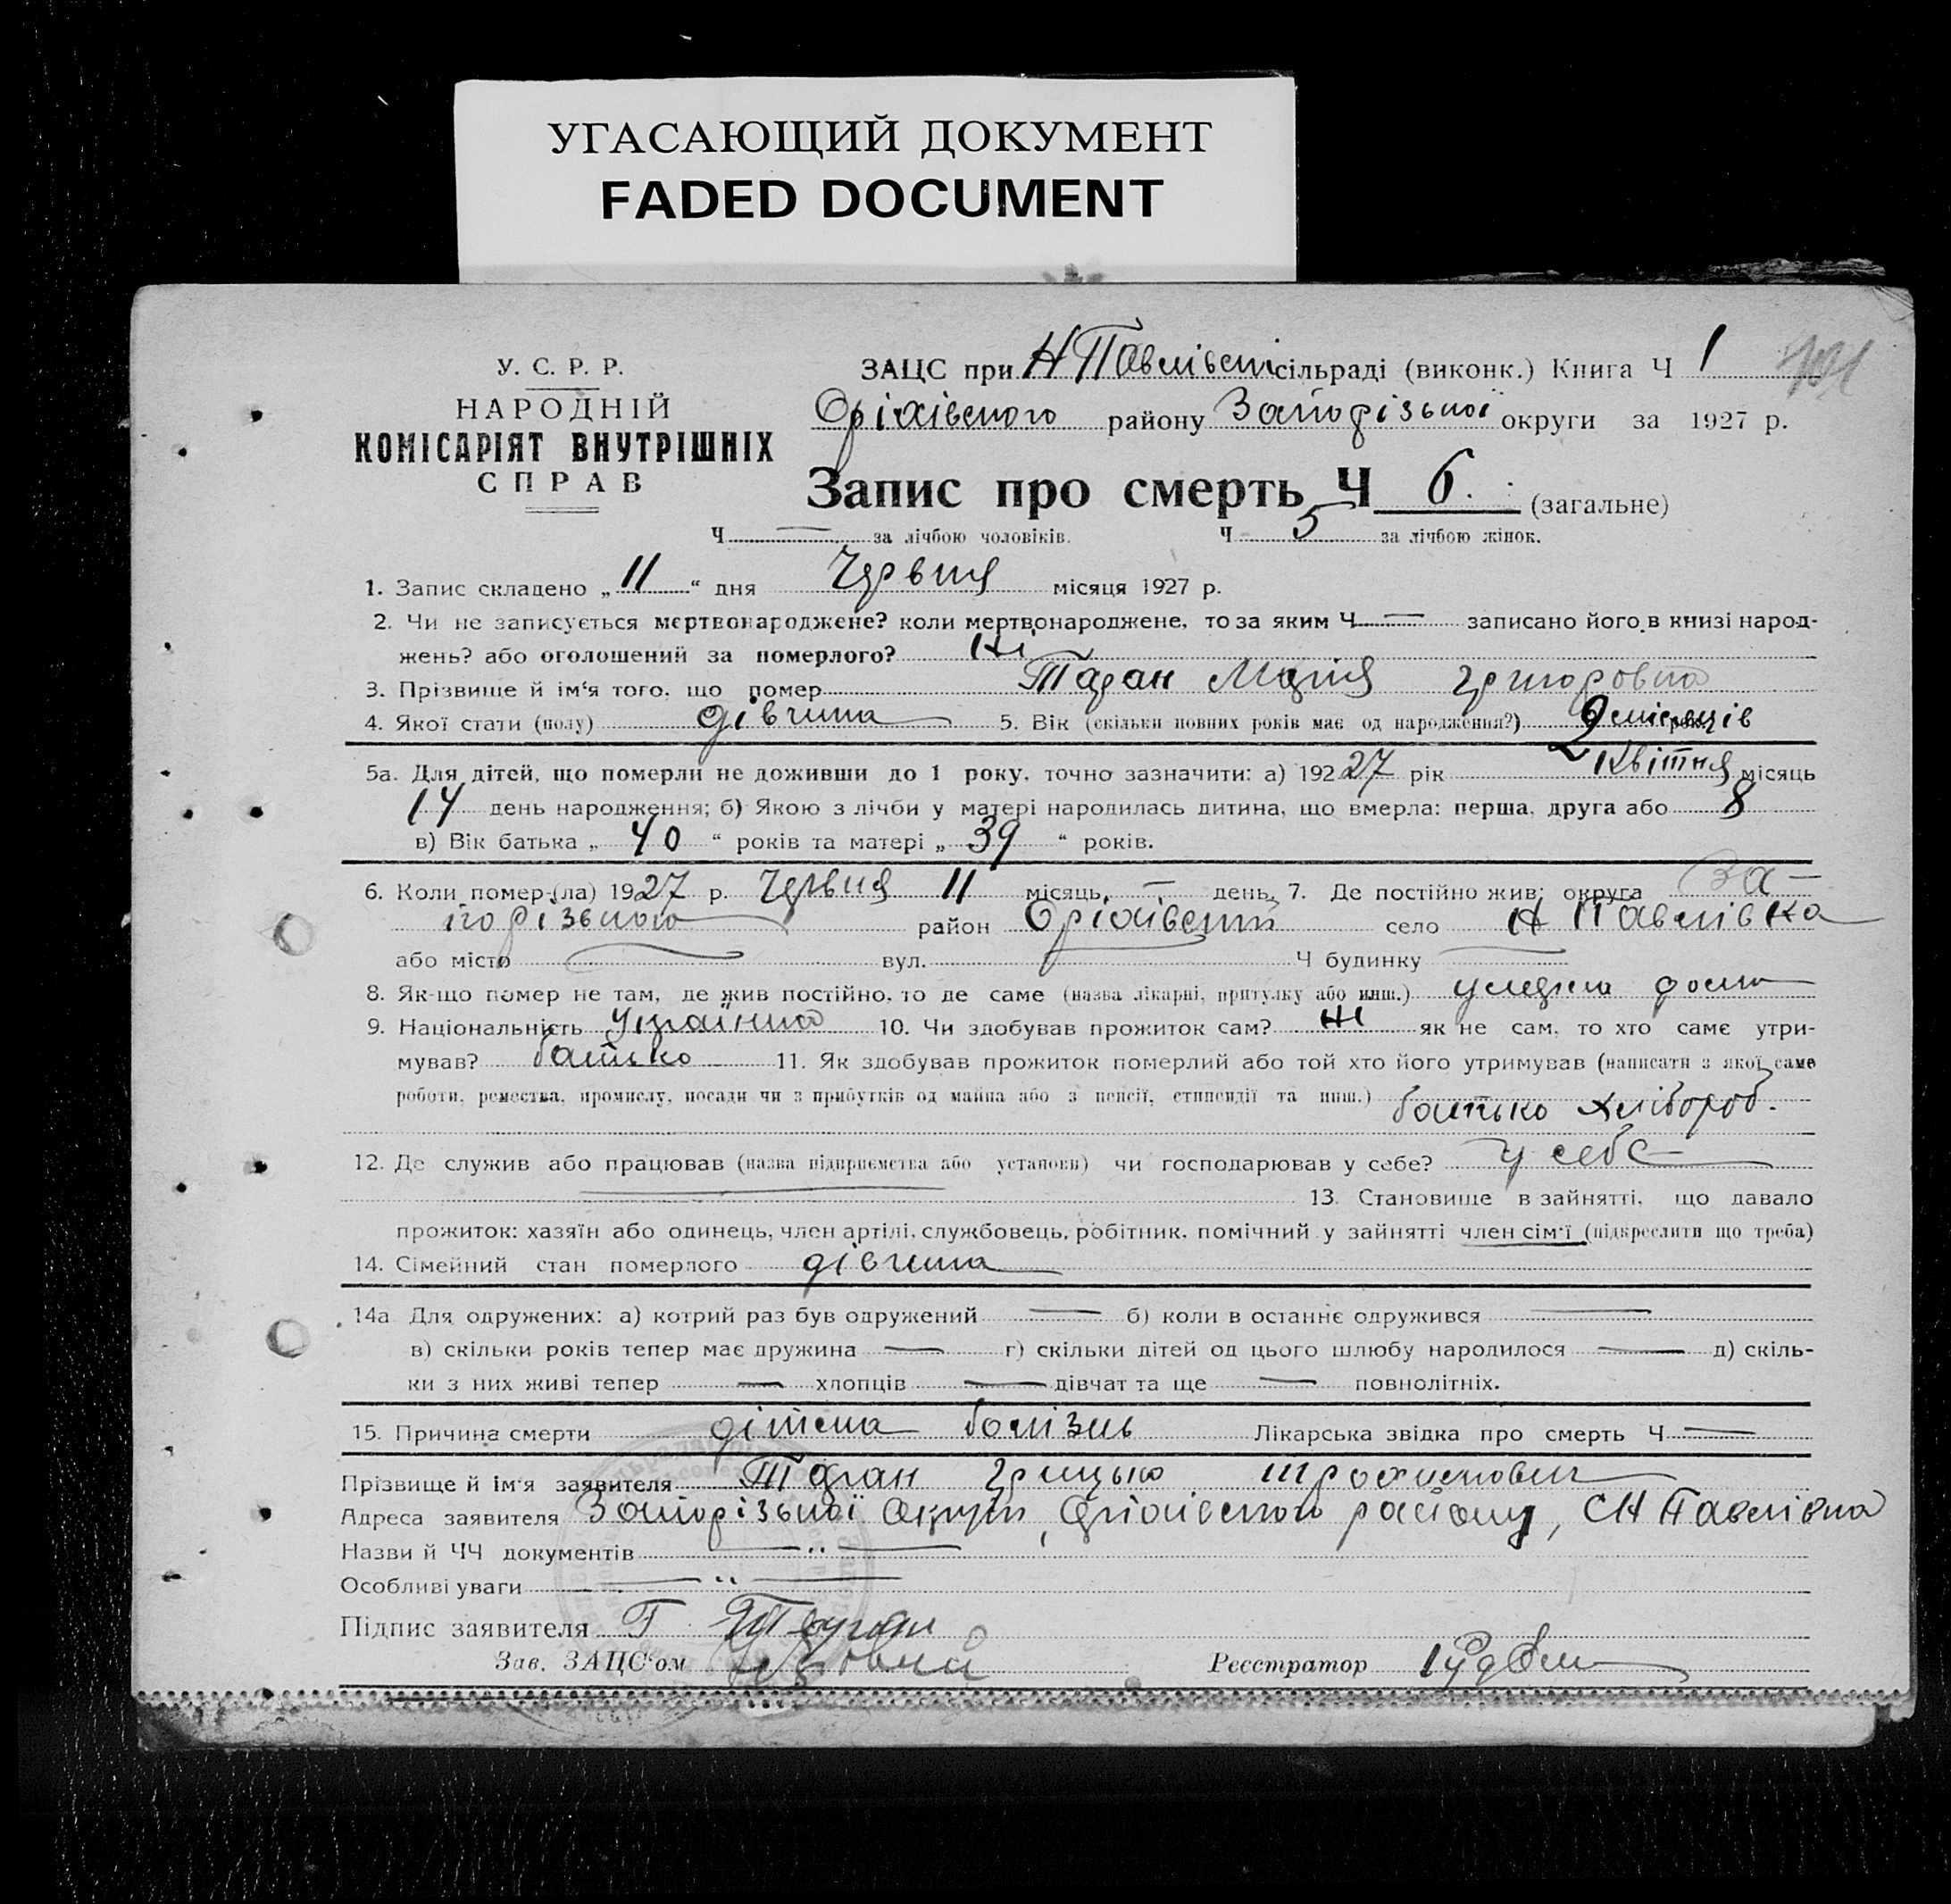 УГАСАЮЩИЙ ДОКУМЕНТ
FADED DOCUMENT
У. С. Р. Р.
НАРОДНІЙ
КОМІСАРІЯТ ВНУТРІШНІХ
СПРАВ
ЗАЦС при Н Павлівській сільраді (виконк.) Книга Ч 1
Оріхівського району Запорізької округи за 1927 р.
Запис про смерть Ч 6. (загальне)
Ч — за лічбою чоловіків. Ч 5 за лічбою жінок.
1. Запис складено „ 11 “ дня Червня місяця 1927 р.
2. Чи не записується мертвонароджене? коли мертвонароджене, то за яким Ч — записано його в книзі народ-
жень? або оголошений за померлого? Ні
3. Прізвище й ім'я того, що помер Таран Марія Григоровна
4. Якої стати (полу) дівчина 5. Вік (скільки повних років має од народження?) 2 місяців
5а. Для дітей, що померли не доживши до 1 року, точно зазначити: а) 192 27 рік Квітня місяць
14 день народження; б) Якою з лічби у матері народилась дитина, що вмерла: перша, друга або 8
в) Вік батька „ 40 “ років та матері „ 39 “ років.
6. Коли помер-(ла) 19 27 р. Червня 11 місяць, — день, 7. Де постійно жив: округа За-
порізького район Оріхівський село Н Павлівка
або місто — вул. — Ч будинку —
8. Як-що помер не там, де жив постійно, то де саме (назва лікарні, притулку або инш.) умерла дома
9. Національність Українка 10. Чи здобував прожиток сам? Ні як не сам, то хто саме утри-
мував? батько 11. Як здобував прожиток померлий або той хто його утримував (написати з якої саме
роботи, ремества, промислу, посади чи з прибутків од майна або з пенсії, стипендії та инш.) батько хлібороб.
12. Де служив або працював (назва підприємства або установи) чи господарював у себе? у себе
13. Становище в зайнятті, що давало
прожиток: хазяїн або одинець, член артілі, службовець, робітник, помічний у зайнятті член сім'ї (підкреслити що треба)
14. Сімейний стан померлого дівчина
14а Для одружених: а) котрий раз був одружений — б) коли в останнє одружився —
в) скільки років тепер має дружина — г) скільки дітей од цього шлюбу народилося — д) скіль-
ки з них живі тепер — хлопців — дівчат та ще — повнолітніх.
15. Причина смерти дітска болізнь Лікарська звідка про смерть Ч —
Прізвище й ім'я заявителя Таран Грицько Трохимович
Адреса заявителя Запорізької Округи, Оріхівського району, С Н Павлівка
Назви й ЧЧ документів — „ —
Особливі уваги — „ —
Підпис заявителя Г Таран
Зав. ЗАЦС'ом
Реєстратор